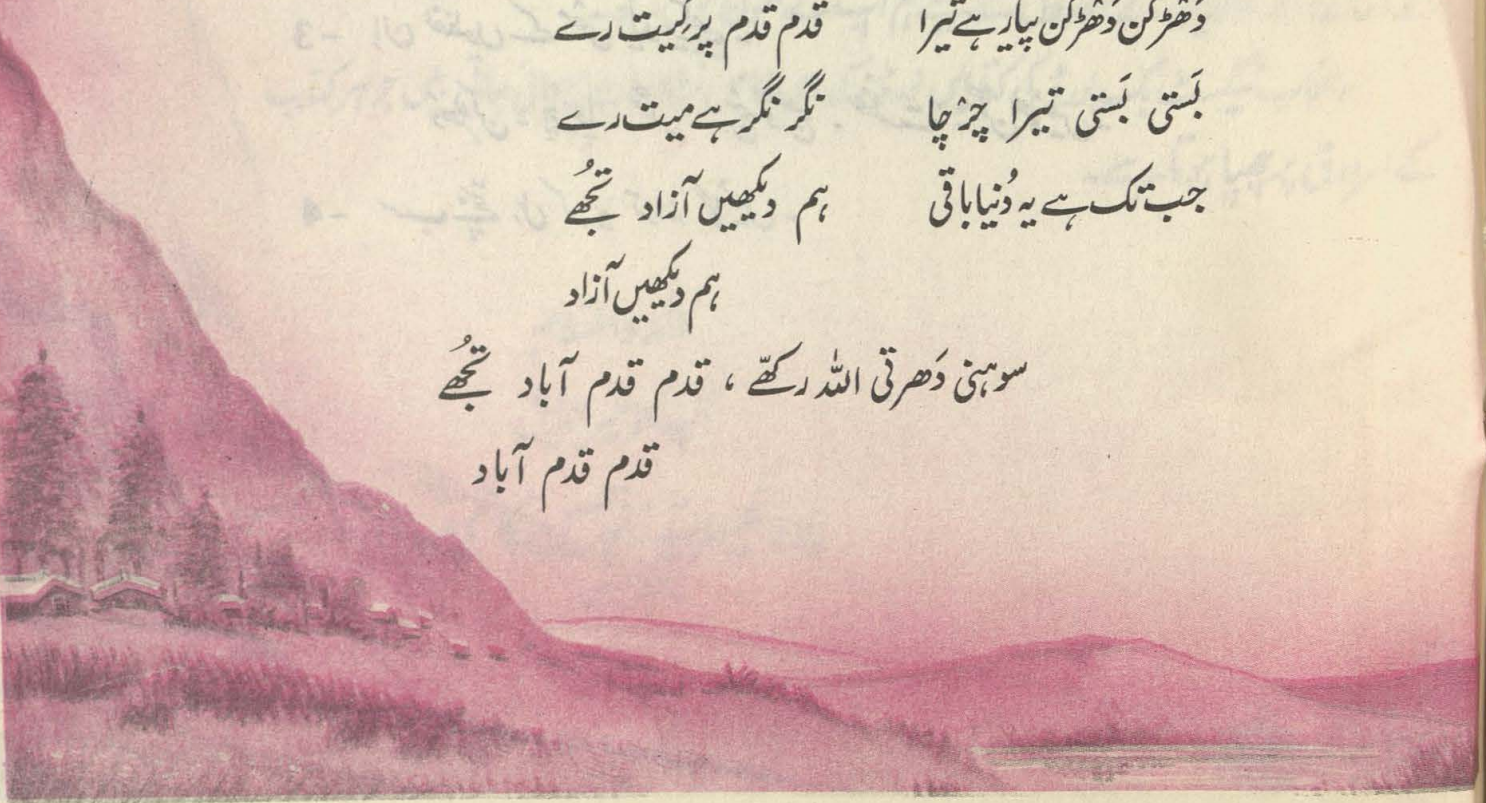 دَھڑکن دَھڑکن پیار ہے تیرا قدم قدم پر گیت رے
بَستی بَستی تیرا چرْچا نگر نگر ہے میت رے
جب تک ہے یہ دُنیا باقی ہم دیکھیں آزاد تُجھے
ہم دیکھیں آزاد
سوہنی دَھرتی اللہ رکھّے ، قدم قدم آباد تُجھے
قدم قدم آباد